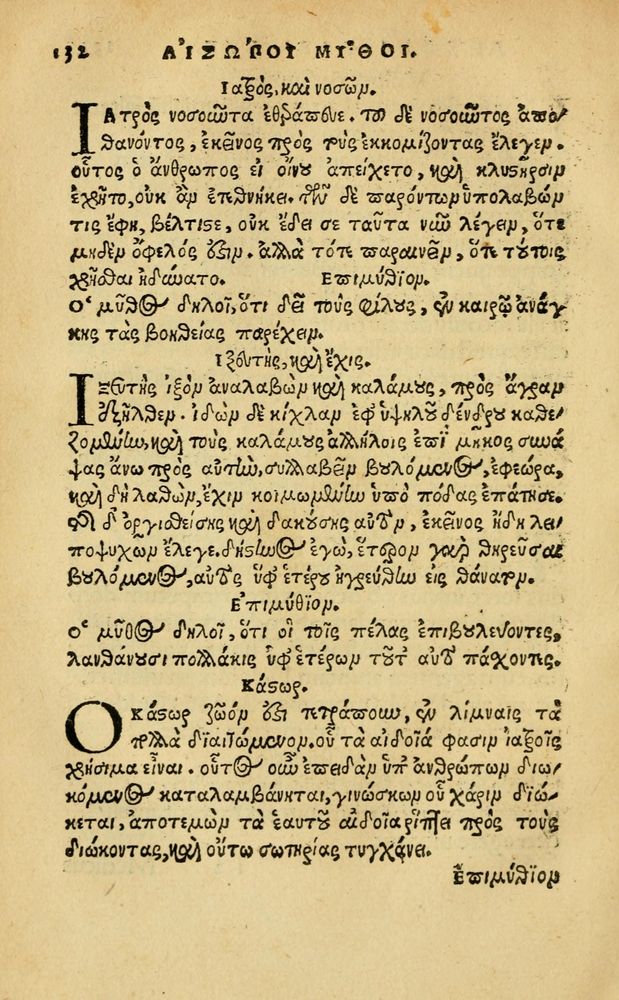 132 ΑΙΣΩΠΟΥ ΜΥΘΟΙ.
Ἰατρὸς, καὶ νοσῶν.
ΙΑΤΡὸς νοσοῦντα ἐθεράπευε. τοῦ δὲ νοσοῦντος ἀπο-
θανόντος, ἐκεῖνος πρὸς τοὺς ἐκκομίζοντας ἔλεγεν.
οὗτος ὁ ἄνθρωπος εἰ οἴνου ἀπείχετο, καὶ κλυστῆρσιν
ἐχρῆτο, οὐκ ἂν ἐτεθνήκει. τῶν δὲ παρόντων ὑπολαβών
τις ἔφη, βέλτιστε, οὐκ ἔδει σε ταῦτα νῦν λέγειν, ὅτε
μηδὲν ὄφελός ἐστιν. ἀλλὰ τότε παραινεῖν, ὅτε τούτοις
χρῆσθαι ἠδύνατο. Ἐπιμύθιον.
Ὁ μῦθος δηλοῖ, ὅτι δεῖ τοὺς φίλους, ἐν καιρῷ ἀνάγ-
κης τὰς βοηθείας παρέχειν.
Ἰξευτής, καὶ ἔχις.
ΙΞΕυτὴς ἰξὸν ἀναλαβὼν καὶ καλάμους, πρὸς ἄγραν
ἐξῆλθεν. ἰδὼν δὲ κίχλαν ἐφ' ὑψηλοῦ δένδρου καθε-
ζομένην, καὶ τοὺς καλάμους ἀλλήλοις ἐπὶ μῆκος συνά-
ψας ἄνω πρὸς αὐτὴν, συλλαβεῖν βουλόμενος, ἐφεώρα,
καὶ δὴ λαθὼν, ἔχιν κοιμωμένην ὑπὸ πόδας ἐπάτησε.
τῆς δ' ὀργισθείσης καὶ δακούσης αὐτὸν, ἐκεῖνος ἤδη λει-
ποψυχῶν ἔλεγε. δύστηνος ἐγώ, ἕτερον γὰρ θηρεῦσαι
βουλόμενος, αὐτὸς ὑφ' ἑτέρου ἠγρεύθην εἰς θάνατον.
Ἐπιμύθιον.
Ὁ μῦθος δηλοῖ, ὅτι οἱ τοῖς πέλας ἐπιβουλεύοντες,
λανθάνουσι πολλάκις ὑφ' ἑτέρων τοῦτ' αὐτὸ πάσχοντες.
Κάστωρ.
ΟΚάστωρ ζῶόν ἐστι τετράπουν, ἐν λίμναις τὰ
πολλὰ διαιτώμενον. οὗ τὰ αἰδοῖά φασιν ἰατροῖς
χρήσιμα εἶναι. οὗτος οὖν ἐπειδὰν ὑπ' ἀνθρώπων διω-
κόμενος καταλαμβάνηται, γινώσκων οὗ χάριν διώ-
κεται, ἀποτεμὼν τὰ ἑαυτοῦ αἰδοῖα ῥίπτει πρὸς τοὺς
διώκοντας, καὶ οὕτω σωτηρίας τυγχάνει.
Ἐπιμύθιον